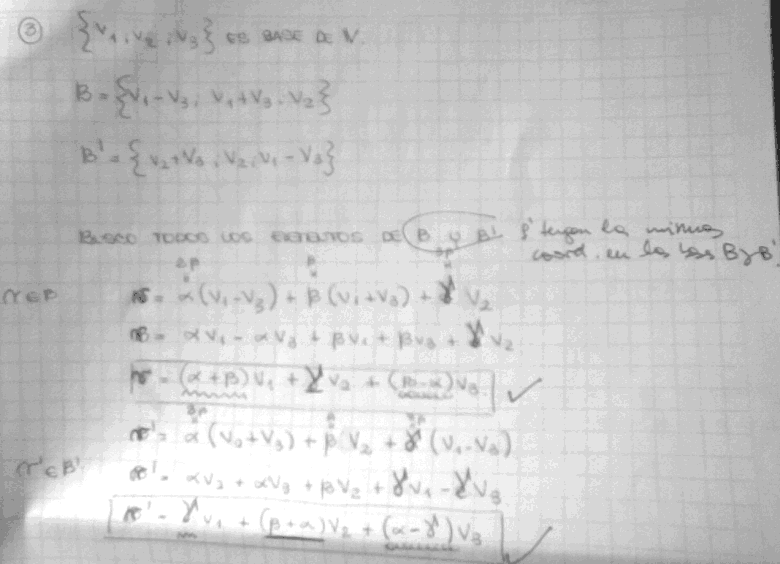 ③ {v₁, v₂, v₃} ES BASE DE V.
B = {v₁ - v₃, v₁ + v₃, v₂}
B' = {v₂ + v₃, v₂, v₁ - v₃}
BUSCO TODOS LOS ELEMENTOS DE B y B' q' tengan la misma
coord. en las bases B y B'
3β β 3β
v ∈ B v = α(v₁ - v₃) + β(v₁ + v₃) + γ v₂
v = αv₁ - αv₃ + βv₁ + βv₃ + γ v₂
v = (α + β)v₁ + γ v₂ + (β - α)v₃ ✓
3β β 3β
v' = α(v₂ + v₃) + β v₂ + γ(v₁ - v₃)
v' ∈ B' v' = αv₂ + αv₃ + βv₂ + γv₁ - γv₃
v' = γv₁ + (β + α)v₂ + (α - γ)v₃ ✓